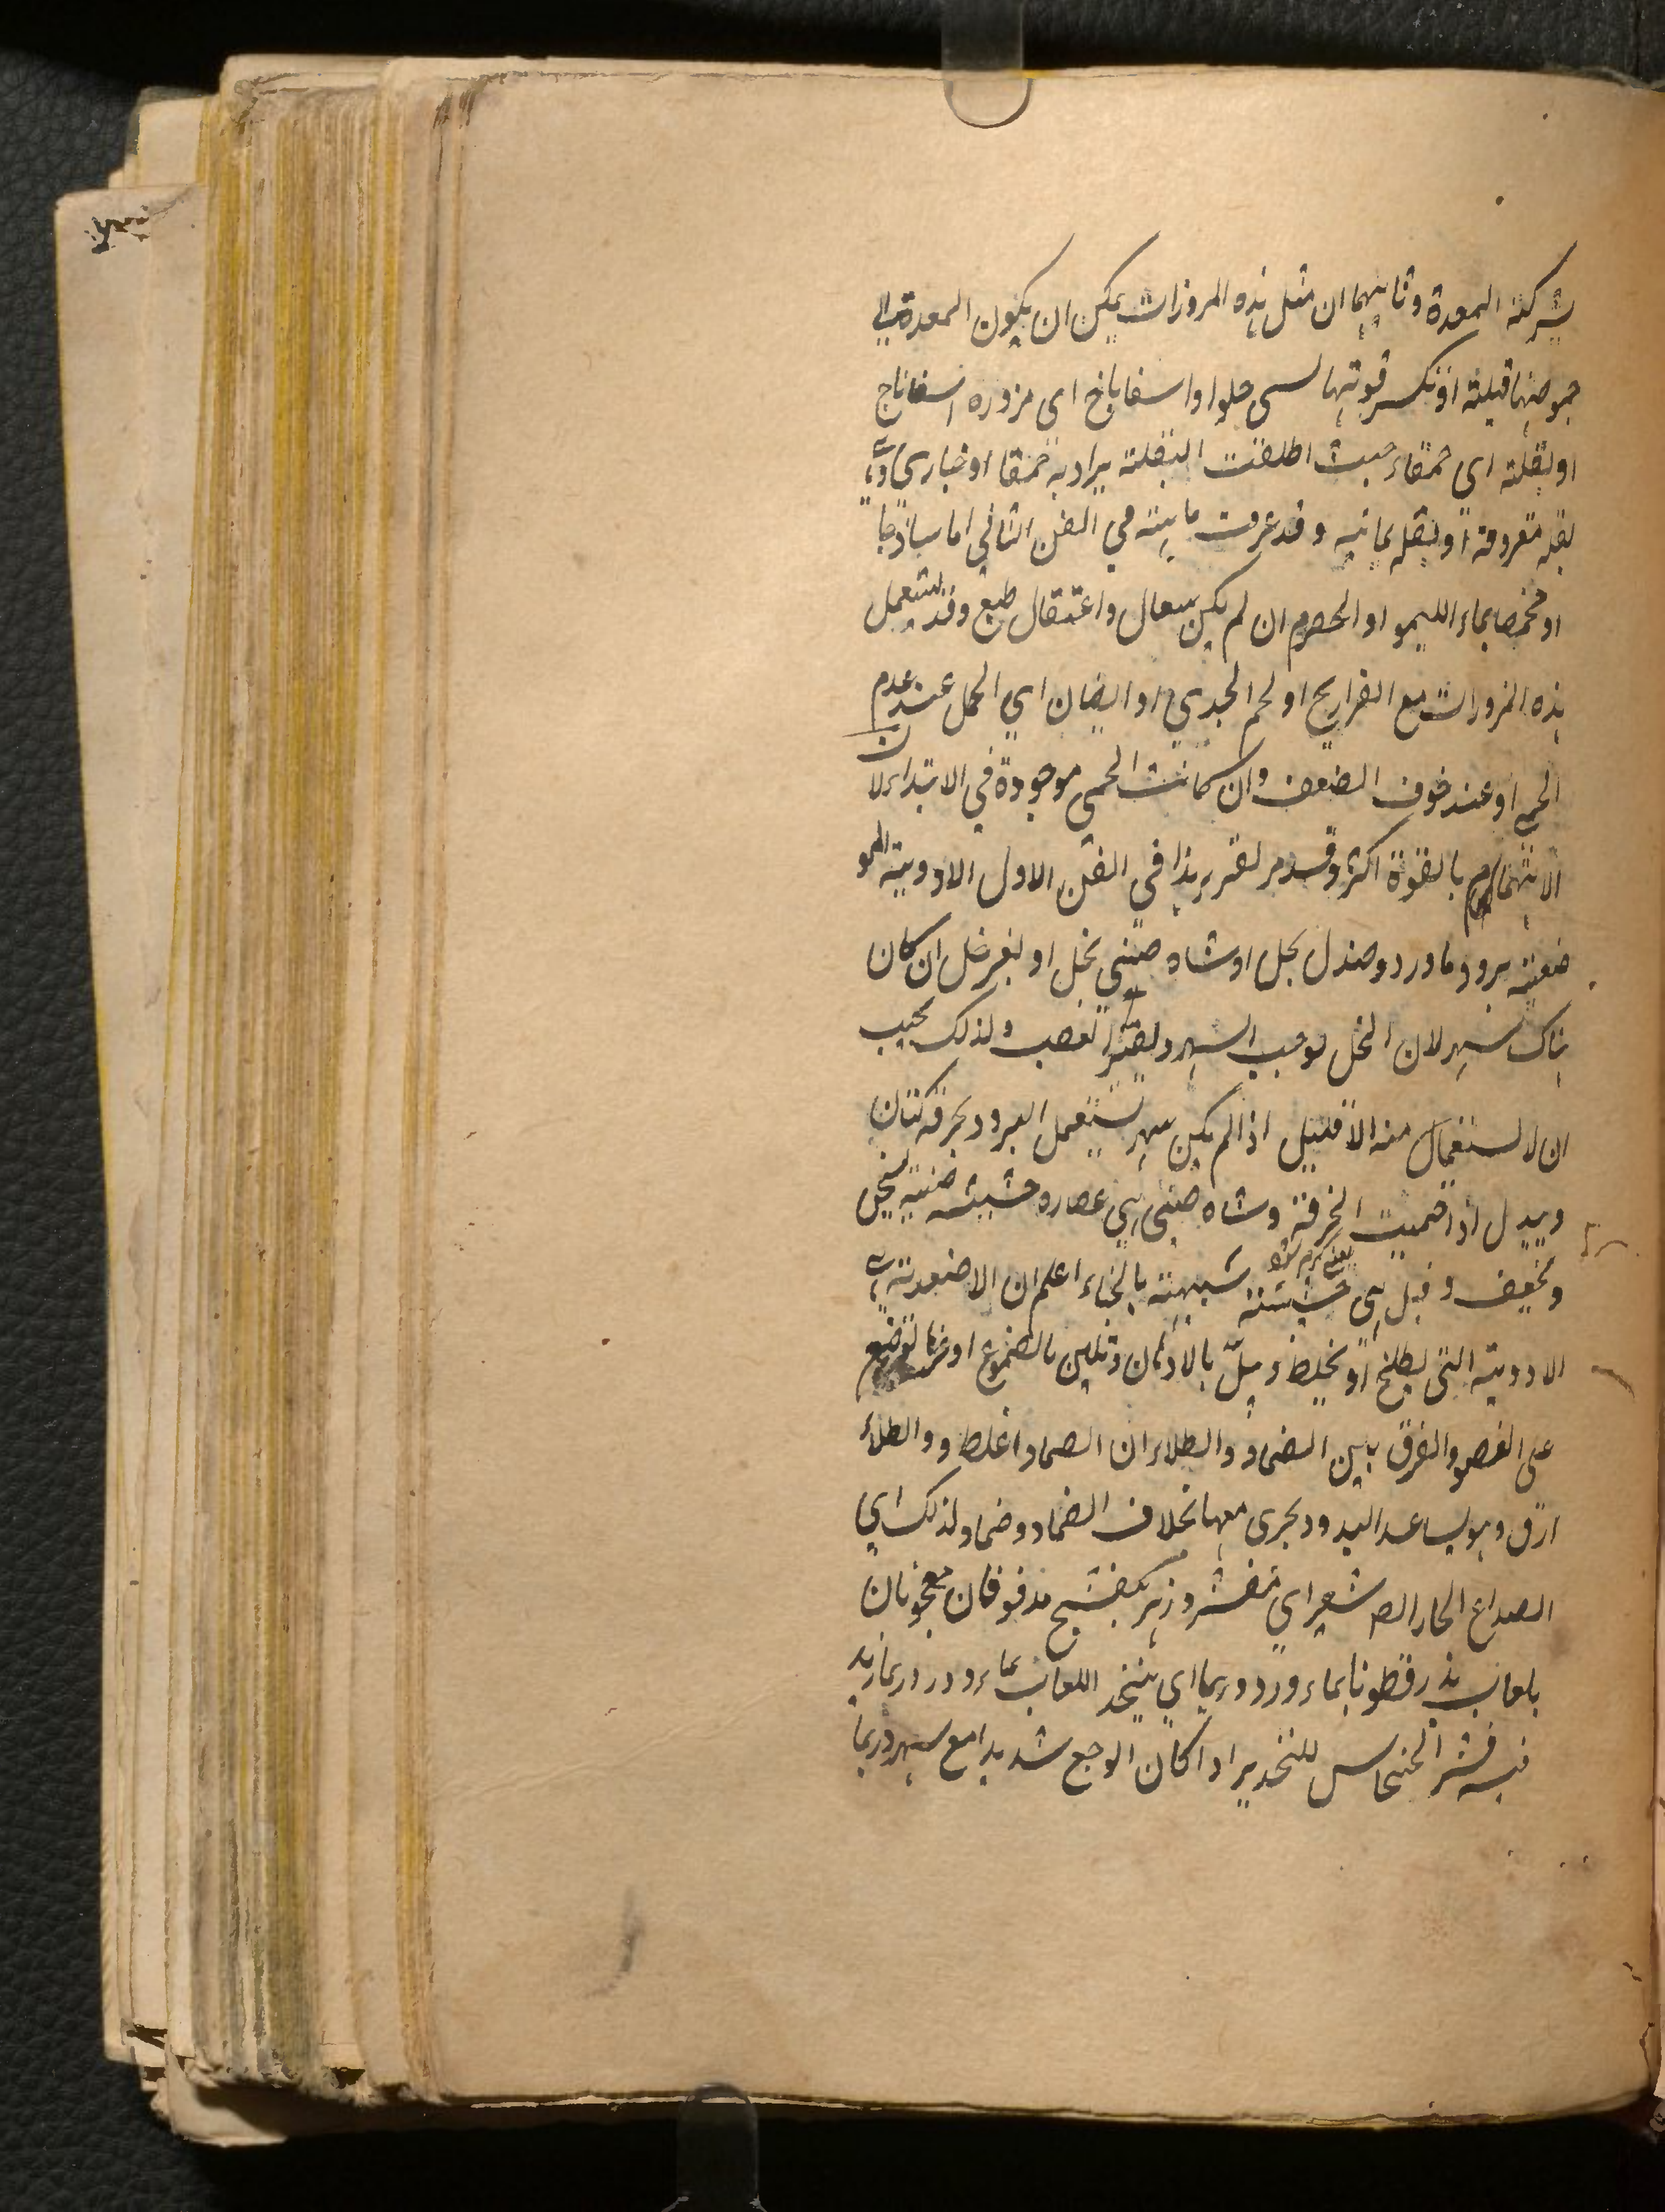 بشركة المعدة وثانيهما ان مثل هذه المزورات يمكن ان يكون المعدة الى
حموضتها قبلته اذ تكسر قوتها لسى حلوا واسفاناخ اى مزوره اسفاناج
او بقلة اى حمقاء حيث اطلقت البقلة يراد به حمقا او خبازي وهى
بقلة معروفة او بقله يمانيه وقد عرفت ماهيته في الفن الثاني اما ساذجا
او محمضا بماء الليمو او الحصرم ان لم يكن سعال واعتقال طبع وقد تستعمل
هذه المزورات مع الفراريج او لحم الجدي او الضان اي الحمل عند عدم
الحمى او عند خوف الضعف وان كانت الحمى موجودة في الابتداء لان
الاهتمام بالقوة اكثر وقد مر تقرير هذا في الفن الاول الادوية المو
ضعية برود ماورد وصندل بخل او شاه صيني بخل او بغير خل ان كان
هناك سهر لان الخل يوجب السهر ويضر العصب ولذلك يجب
ان لا يستعمل منه الا قليل اذا لم يكن سهر تستعمل البرود بخرقة كتان
ويبدل اذا حميت الخرقة وشاه صيني هي عصاره حشيشه صينية تعجن
وتجفف وقيل هى حشيشة شبيهة بالحناء اعلم ان الاضمدة هي
الادوية التى يطبخ او يخلط ويبل بالادهان وتلين بالضموغ او غيرها توضع
على العضو والفرق بين الضماد والطلاء ان الضماد اغلظ والطلاء
ارق وهو يساعد اليد ويجرى معها بخلاف الضماد وضماد لذلك اي
الصداع الحار الصـ شعير اي مقشر وزهر بنفسج مدقوقان معجونان
بلعاب بذر قطونا بماء ورد وربما اي يتخذ اللعاب بماء ورد وربما زيد
فيه قشر الخشخاش للتخدير اذا كان الوجع شديدا مع سهر وربما